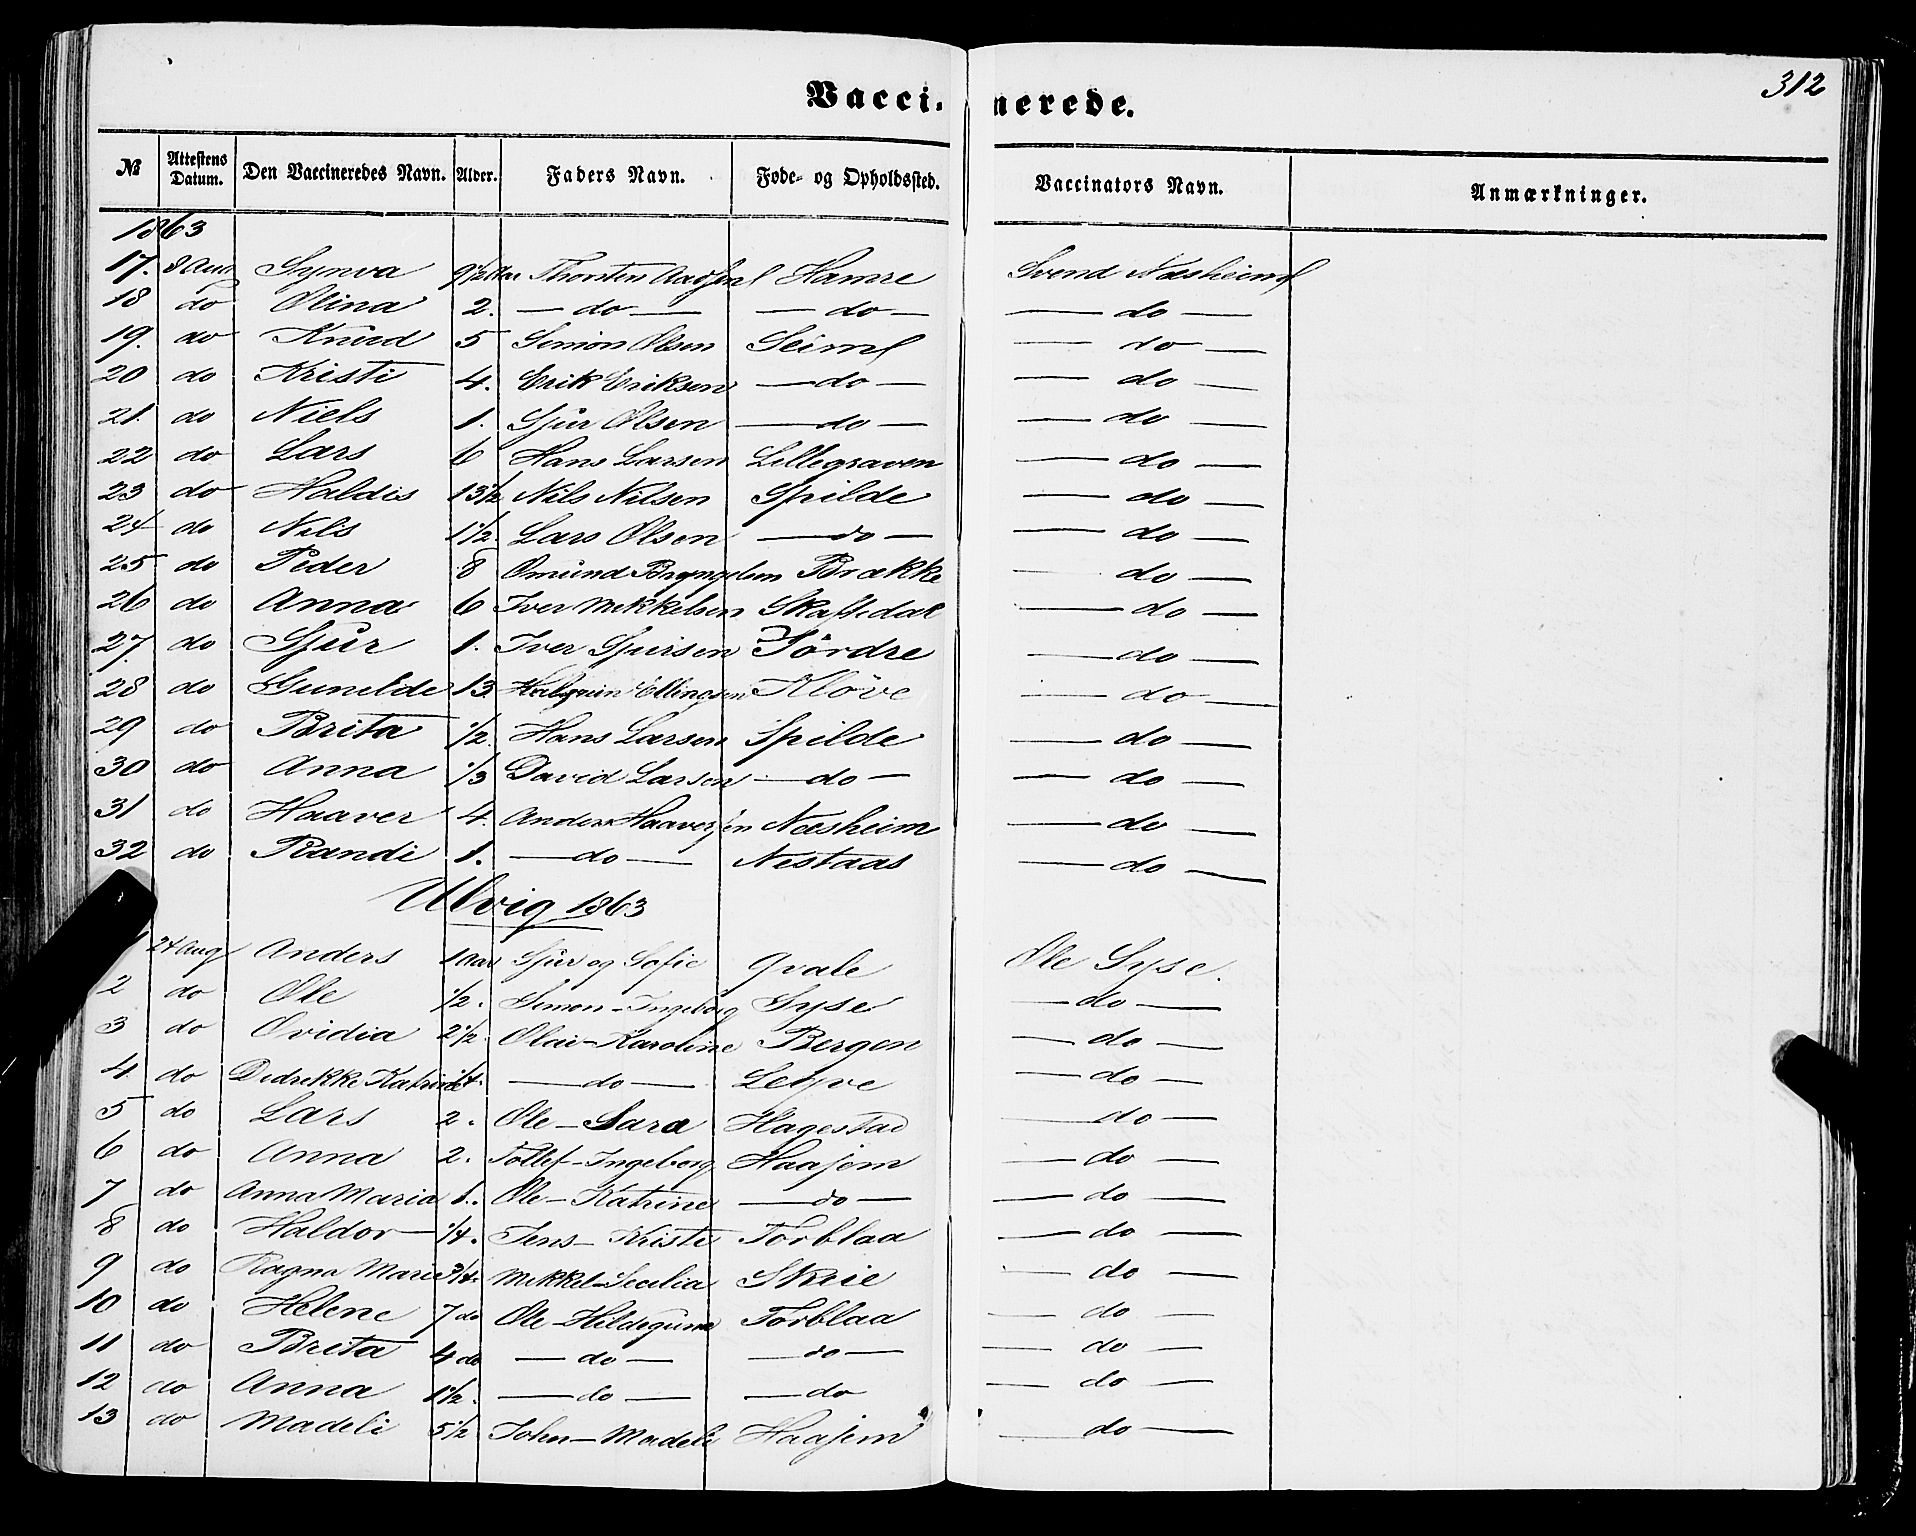 312
Vaccinerede.
№ Attestens Datum. Den Vaccineredes Navn. Alder. Faders Navn. Føde- og Opholdssted. Vaccinators Navn. Anmærkninger.
1863
17. 8 Aug Synva 9½ Aar Thorsten Hamre Svend Næsheim
18 do Olina 2. — do — — do — — do —
19. do Knud 5 Simon Olsen Seim — do —
20 do Kristi 4. Erik Eriksen — do — — do —
21. do Niels 1. Sjur Olsen — do — — do —
22 do Lars 6 Hans Larsen Lillegraven — do —
23 do Haldis 13½ Nils Nilsen Spilde — do —
24 do Nils 1½ Lars Olsen — do — — do —
25 do Peder 8 Omund Bryngelsen Brække — do —
26 do Anna 6 Iver Mekkelsen Skaftedal — do —
27. do Sjur 1. Iver Sjursen Iördre — do —
28 do Gunilde 13. Ellingsen Klöve — do —
29 do Brita ½. Hans Larsen Spilde — do —
30 do Anna ⅓ David Larsen — do — — do —
31 do Haaver 4. Anders Haaversen Næsheim — do —
32 do Randi 1. — do — Nestaas — do —
Ulvig 1863
24 Aug Anders 1 Aar Sjur og Sofie Qvale Ole Syse.
2 do Ole ½. Simon - Ingeborg Syse — do —
3 do Ovidia 2½ Olai - Karoline Bergen — do —
4. do Didrekke Katrine ¼. — do — Leqve — do —
5 do Lars 2. Ole - Sara Hagestad — do —
6 do Anna 2. Tollef - Ingeborg Haajem — do —
7 do Anna Maria 1. Ole - Katrine — do — — do —
8 do Haldor ¼. Jens - Kristi Torblaa — do —
9 do Ragna Marie ¾. Mekkel - Secilia Skeie — do —
10 do Helene 7 do Ole - Hildegunn Torblaa — do —
11 do Brita 4 do — do — — do — — do —
12 do Anna 1½. — do — — do — do —
13 do Madeli 5½ John - Madeli Haajem — do —